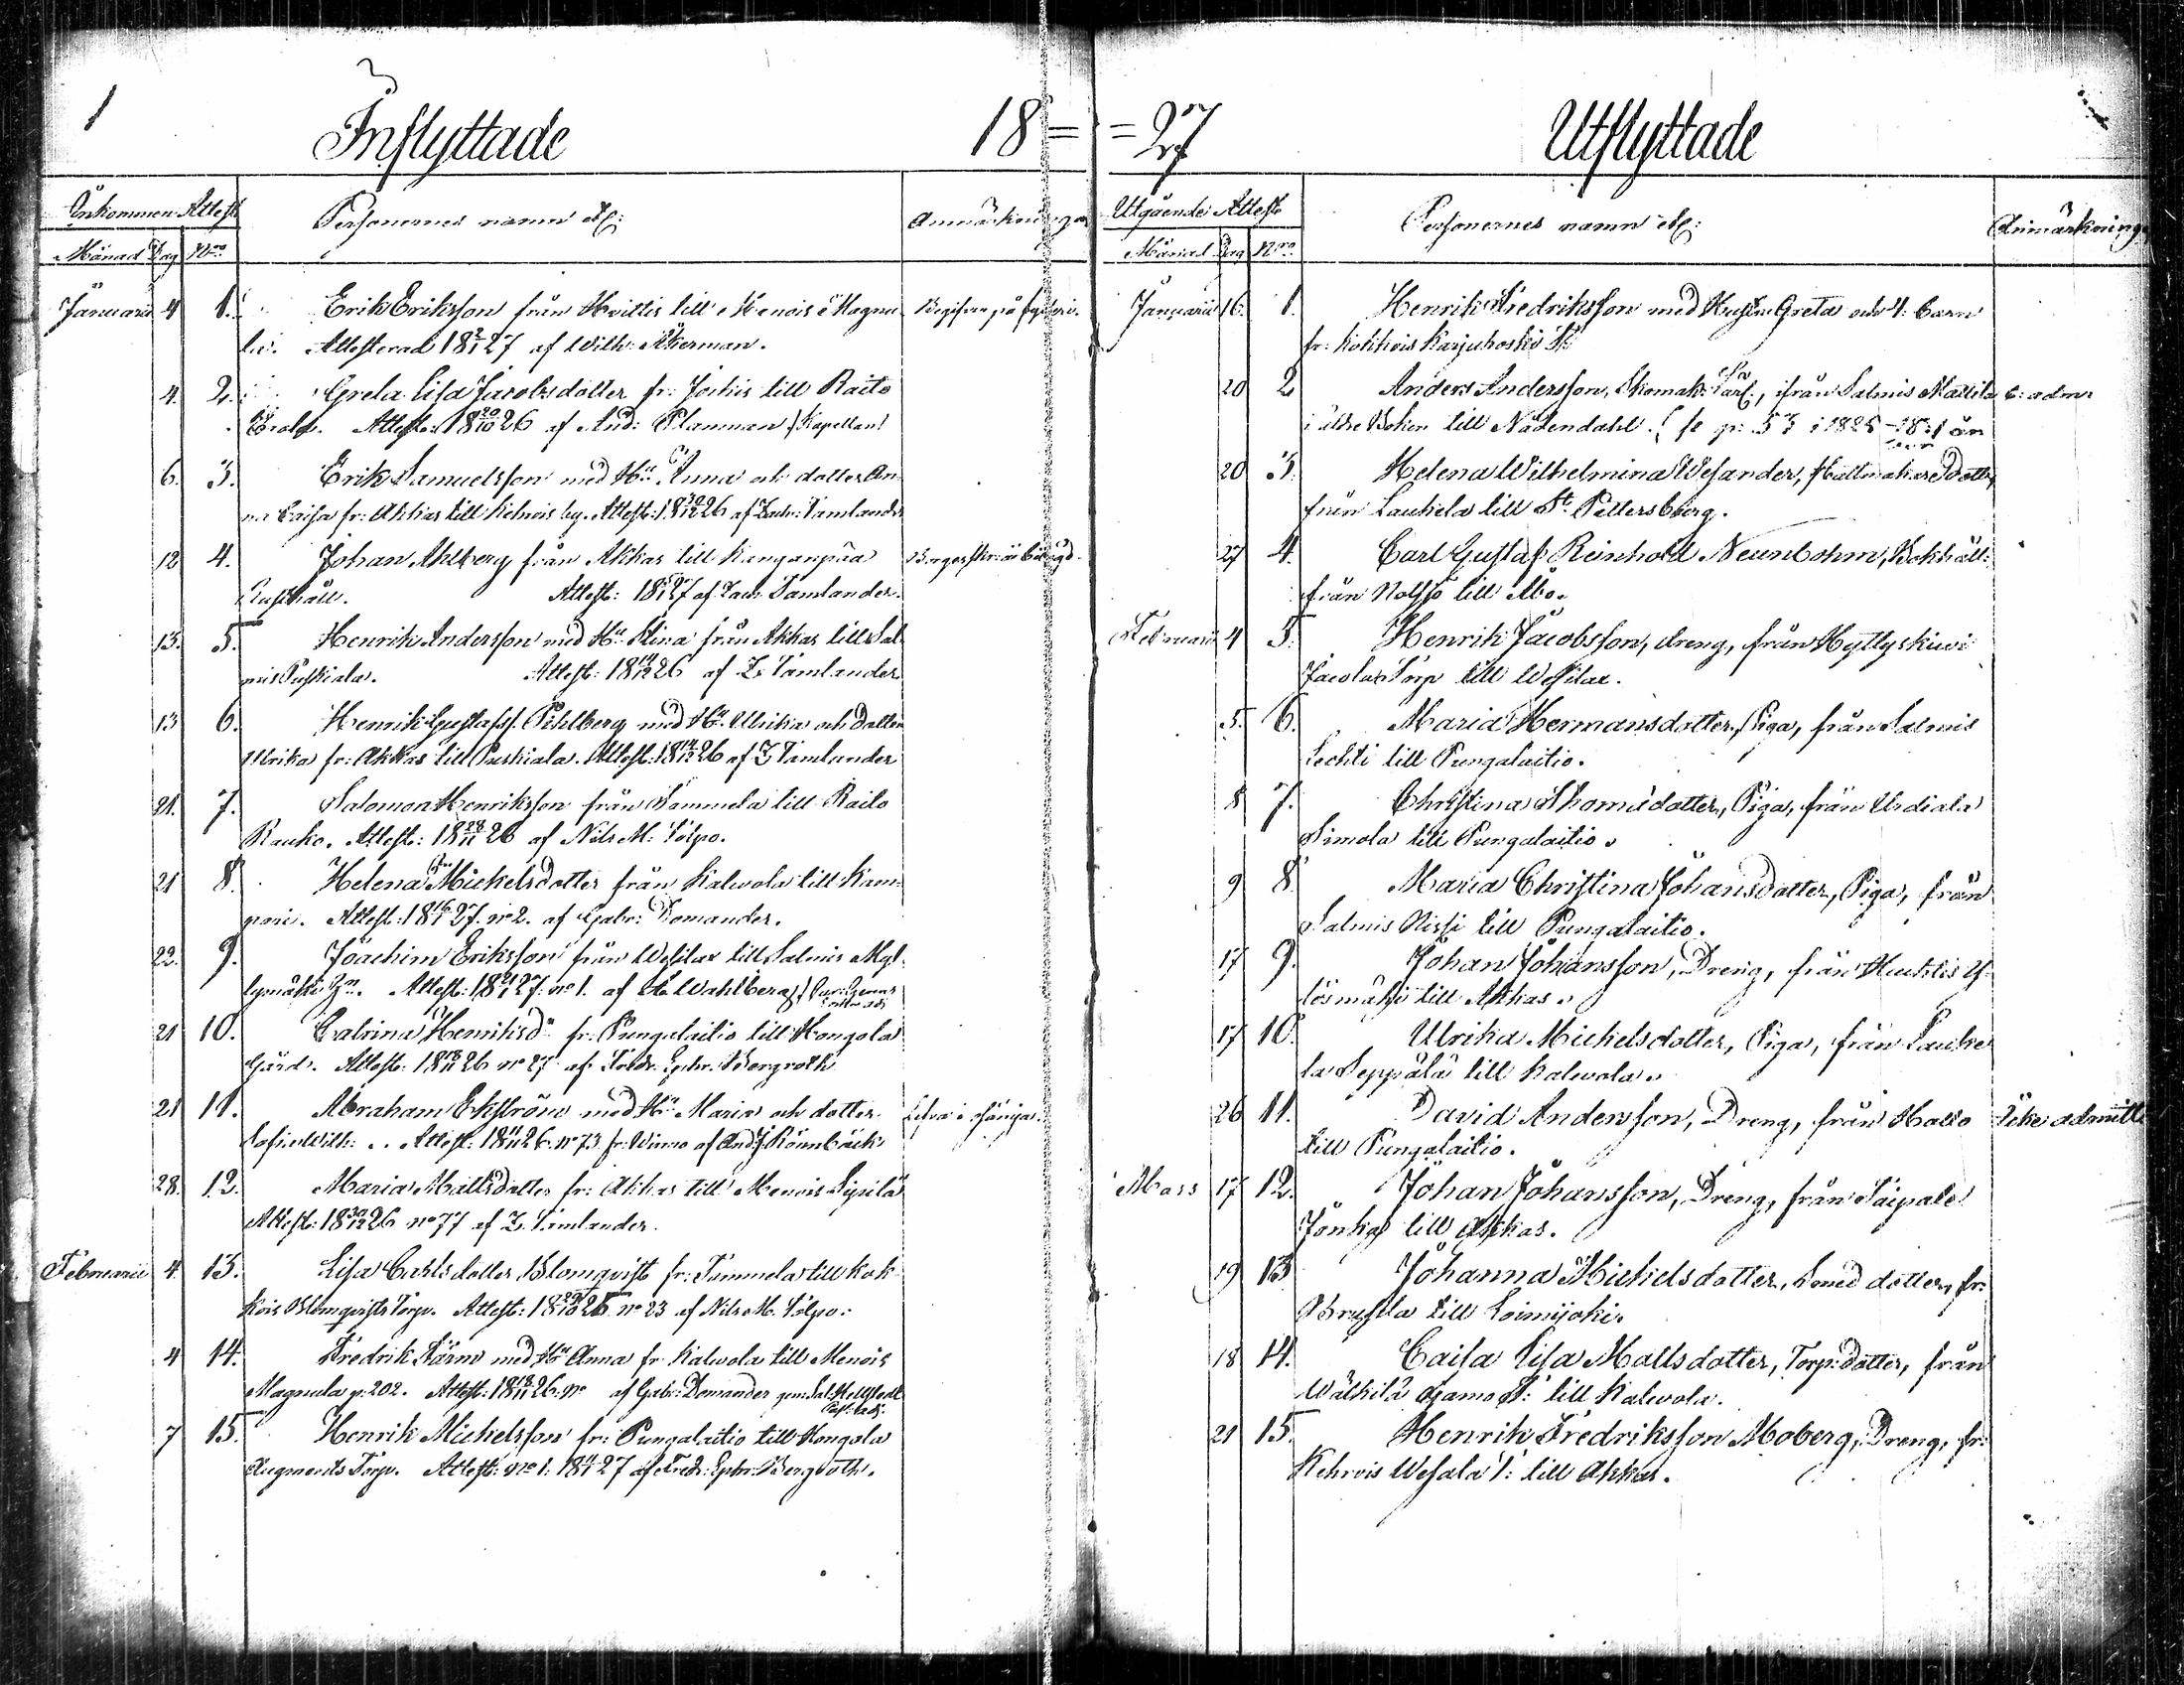 1
Inflyttade 18=
Inkommen Attest
Personernes namn etc:
Anmärkningar
Månad Dag N:ro
Januarii 4 1. Erik Eriksson från Hvittis till Menois Magnu
la. Attesterad 18 2/1 27 af Wilh: Åkerman.
4. 2. Greta Lisa Jacobsdotter fr: Jockis till Raito
Attest: 18 20/10 26 af And: Planman (Kapellan)
6. 3. Erik Samuelsson med H:u Anna och dotter An-
na Caisa fr: Akkas till Kehrois by. Attest: 18 30/12 26 af Zach: Tamlander
12 4. Johan Ahlberg från Akkas till Kanganpää
Rusthåll. Attest: 18 27 af Zach Tamlander.
13. 5. Henrik Andersson med H:u Stina från Akkas till Sal
mis Puskiala. Attest: 18 26 af Z. Tamlander
13 6. Henrik Gustafss. Pihlberg med H:u Ulrika och Dotter
Ulrika fr: Akkas till Puskiala. Attest: 18 26 af Z Tamlander
21. 7. Salomon Henriksson från Tammela till Raito
Rauko. Attest: 18 28/11 26 af Nils M: Tolpo.
21 8. Helena Mickelsdotter från Kalvola till Kam-
pari. Attest: 18 16/1 27. n:o 2. af Gabr: Domander.
22. 9. Joachim Eriksson från Wesilax till Salmis Myl-
lymäki Attest: 18 27: n:o 1. af Wahlberg
21 10. Catrina Henriksd:r fr: Pungalaitio till Hongola
Gård. Attest: 18 26 n:o 27 af Fredr. Ephr. Bergroth
21 11. Abraham Ekström med H:u Maria och dotter
Sofia Wilh: Attest: 18 26. n:o 73 fr: Wirmo af And: J Rönnbäck
28. 12. Maria Mattsdotter fr: Akkas till Menois Sipilä
Attest: 18 30/12 26 n:o 77 af Z. Tamlander.
Februarii 4. 13. Lisa Carlsdotter Blomqvist fr: Tammela till Kok
kois Blomqvists Torp. Attest: 18 26 n:o 23 af Nils M. Tolpo.
4 14. Fredrik Färm med H:u Anna fr Kalvola till Menois
Magnula p: 202. Attest: 18 26. n:o af Gabr: Domander gen. Sal: Hellstedt
7 15. Henrik Michelsson fr: Pungalaitio till Hongola
Augments Torp. Attest: n:o 1: 18 27 af Fredr: Ephr: Bergroth.
=27 Utflyttade
Utgående Attest
Personernes namn etc:
Anmärkning
Månad Dag N:ro
Januarii 16. 1. Henrik Fredriksson med Hustru Greta och 4. barn
fr: Kokkois Karjukoski
20 2 Anders Andersson, Skomak: Lärl:, från Salmis Mattila
i äldre Boken till Nådendahl.
20 3. Helena Wilhelmina Wesander, Hattmakare Dotter,
från Laukela till S:t Pettersborg.
27 4. Carl Gustaf Reinhold Neumbohm, Bokhåll:
från Notsjö till Åbo.
Februarii 4 5. Henrik Jacobsson, dreng, från Hyttyskiwi
Jacolas Torp till Wesilax.
5. 6. Maria Hermansdotter, Piga, från Salmis
Lechti till Pungalaitio.
8 7. Christina Thomädotter, Piga, från Urdiala
Simola till Pungalaitio.
9 8. Maria Christina Johansdotter, Piga, från
Salmis Nissi till Pungalaitio.
17 9. Johan Johansson, Dreng, från Huhtis Y-
lösmäki till Akkas.
17 10. Ulrika Michelsdotter, Piga, från Lauke
la Seppälä till Kalvola.
26 11. David Andersson, Dreng, från Hallo Icke admitt
till Pungalaitio.
Mars 17 12. Johan Johansson, Dreng, från Taipale
Jönkä till Akkas.
19 13 Johanna Mickelsdotter, Smed dotter, fr:
till Loimijoki.
18 14. Caisa Lisa Mattsdotter, Torp: dotter, från
Wälkilä till Kalvola.
21 15. Henrik Fredriksson Moberg, Dreng, fr:
Kehrois Wesala T: till Akkas.